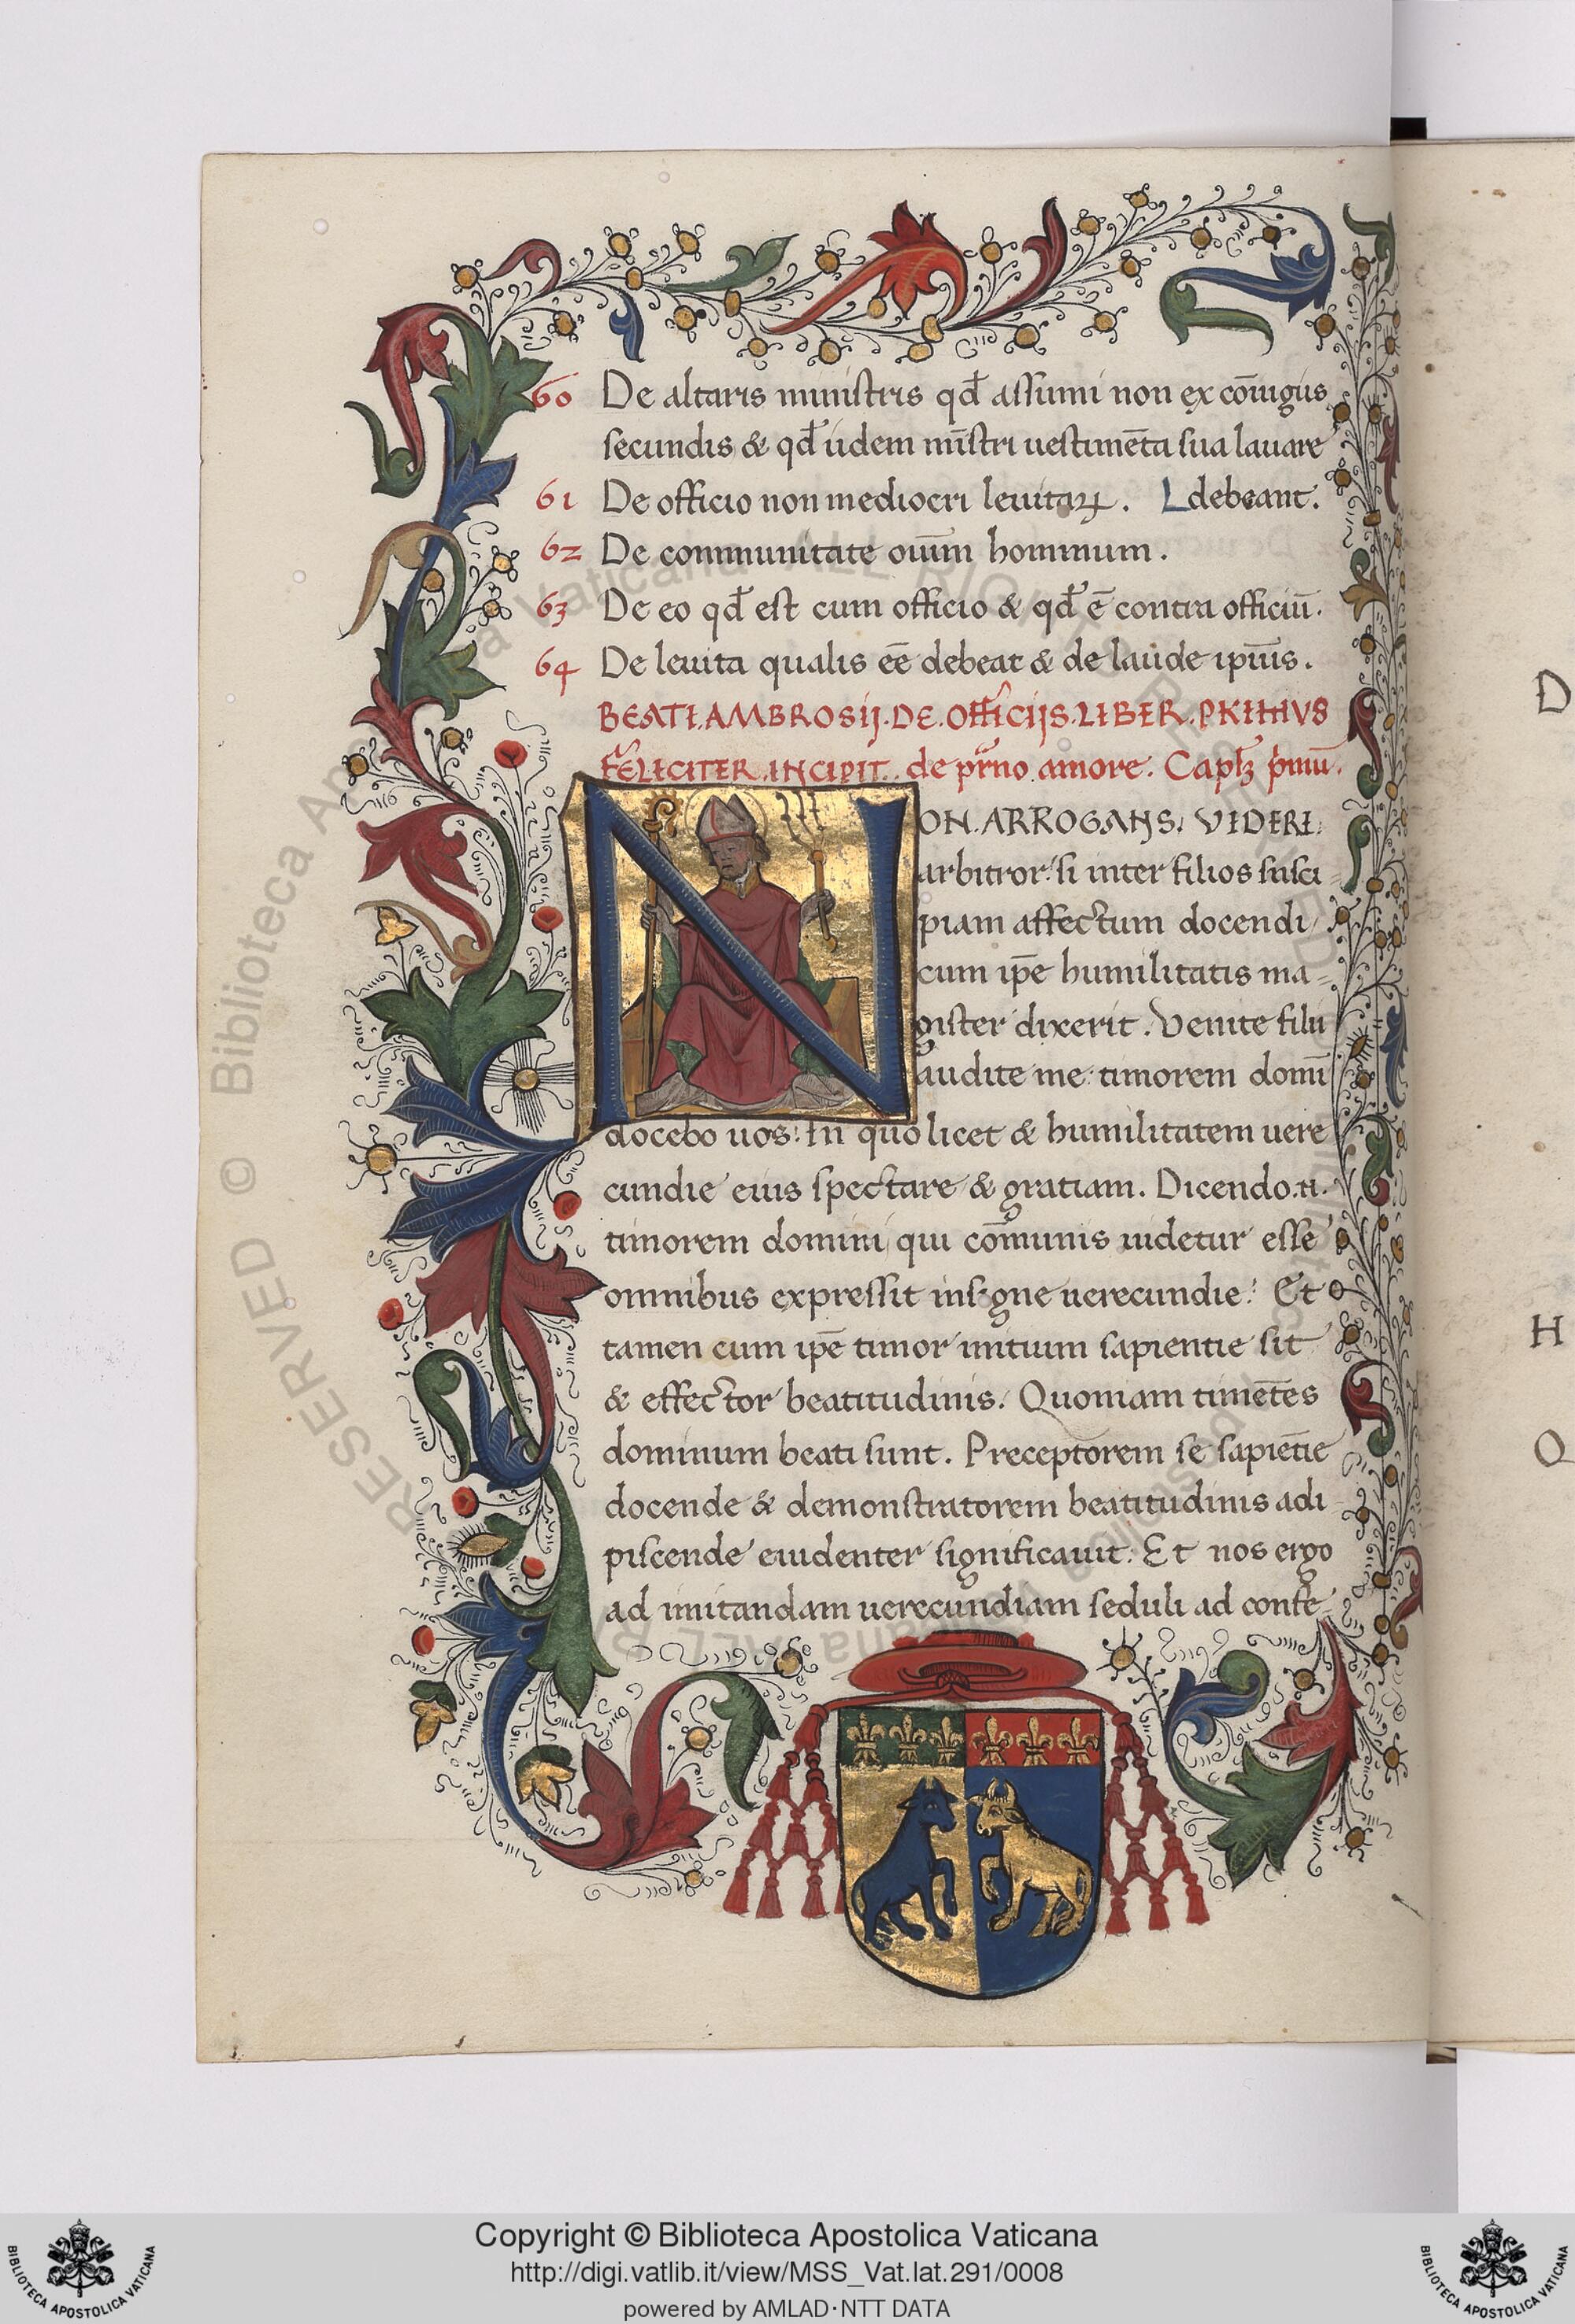 60 De altaris ministris qd̄ assumi non ex cōiugiis
secundis & qd̄ iidem mīstri uestimēta sua lauare
61 De officio non mediocri leuitaꝝ. debeant.
62 De communitate oīum hominum.
63 De eo qd̄ est cum officio & qd̄ ē contra officiū.
64 De leuita qualis eē debeat & de laude ipīus.
BEATI.AMBROSIJ.DE.OFFICIJS.LIBER.PRIMVS
FELICITER.INCIPIT. de pr̄no amore. Capłꝫ p̄imū.
NON.ARROGANS. VIDERI.
arbitror si inter filios susci
piam affectum docendi
cum ip̄e humilitatis ma-
gister dixerit. Venite filii
audite me timorem domī
docebo uos: In quo licet & humilitatem uere
cundie eius spectare & gratiam. Dicendo.n.
timorem domini qui cōmunis uidetur esse
omnibus expressit insigne uerecundie. Et
tamen cum ip̄e timor initium sapientie sit
& effector beatitudinis. Quoniam timētes
dominum beati sunt. Preceptorem se sapiētie
docende & demonstratorem beatitudinis adi
piscende euidenter significauit. Et nos ergo
ad imitandam uerecundiam seduli ad confe
D
H
Q
RESERVED © Biblioteca Apostolica Vaticana ALL RIGHTS RESERVED
Copyright © Biblioteca Apostolica Vaticana
http://digi.vatlib.it/view/MSS_Vat.lat.291/0008
powered by AMLAD·NTT DATA
BIBLIOTECA APOSTOLICA VATICANA
BIBLIOTECA APOSTOLICA VATICANA